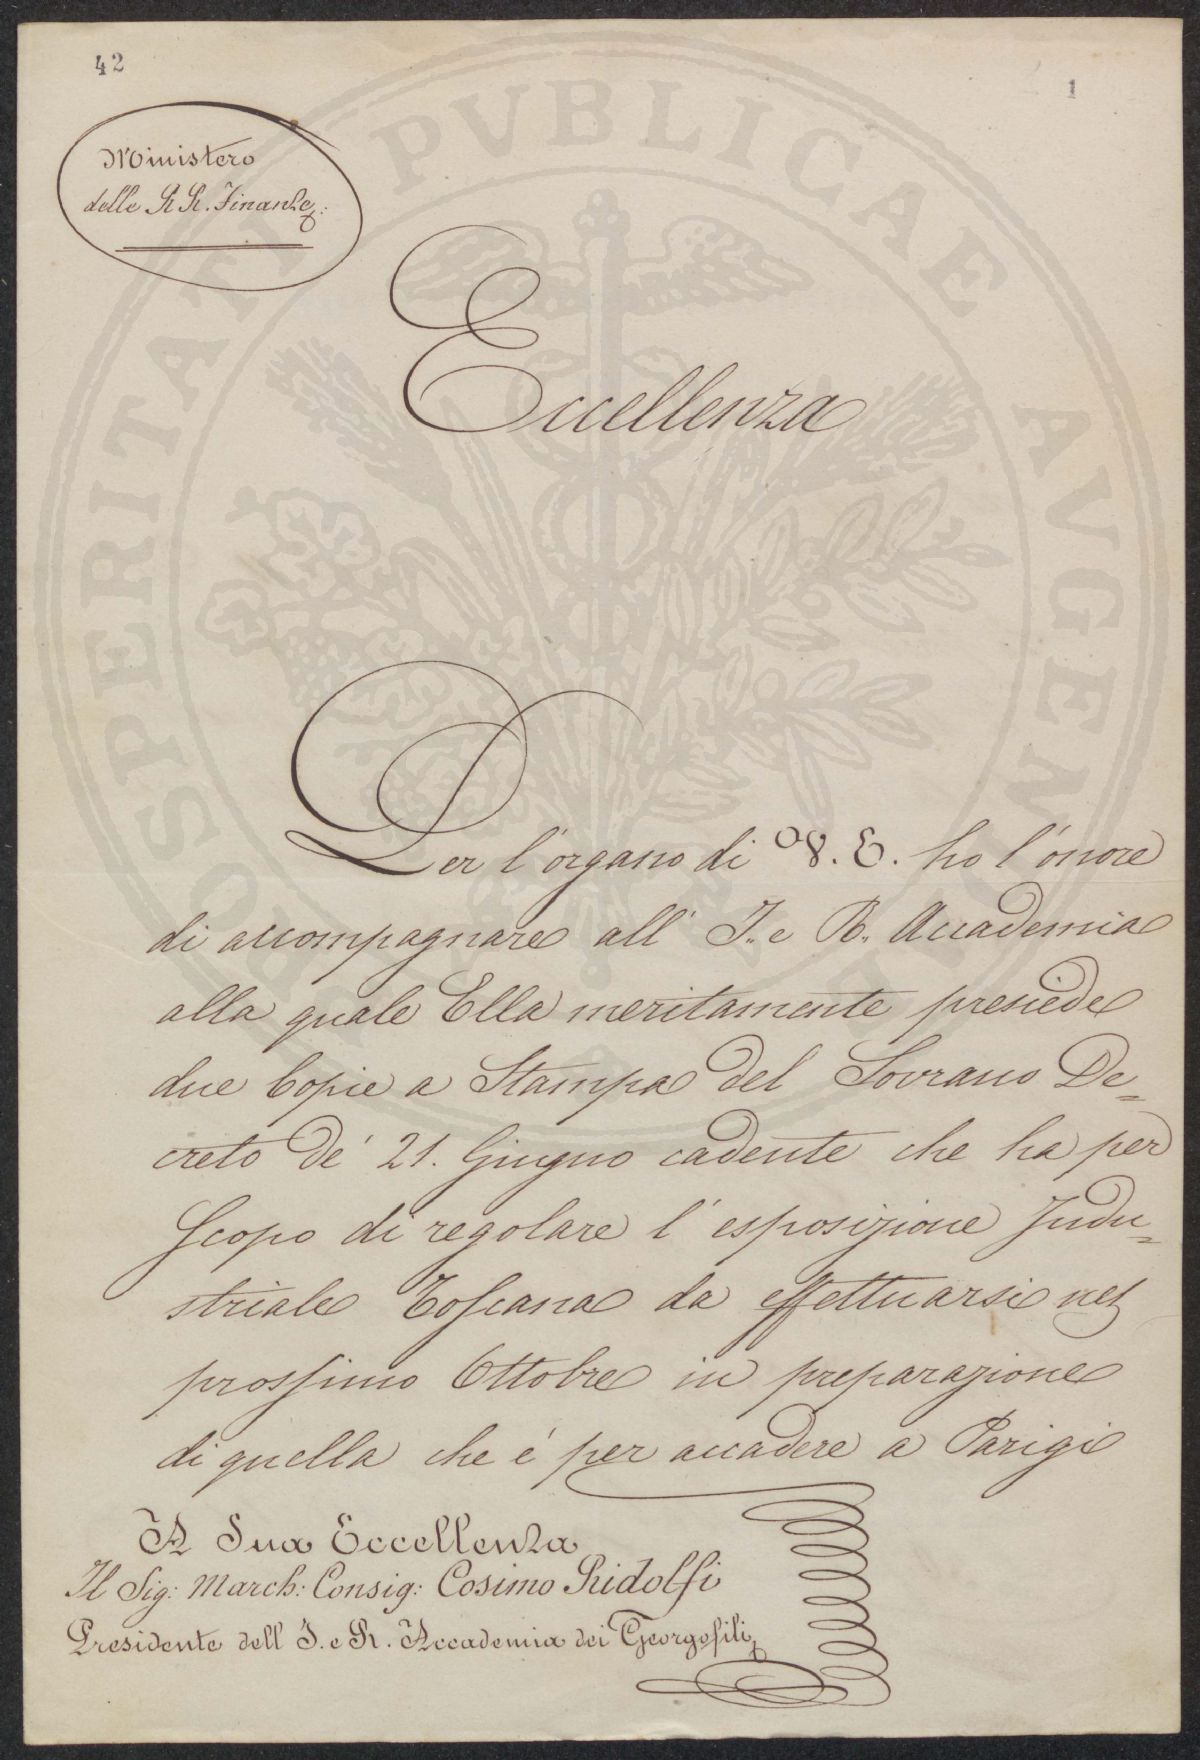 42
1
Ministero
delle R R. Finanze:
Eccellenza
Per l'organo di V. E. ho l'onore
di accompagnare all' I. e R. Accademia
alla quale Ella meritamente presiede
due Copie a Stampa del Sovrano De=
creto de' 21. Giugno cadente che ha per
Scopo di regolare l'esposizione Indu=
striale Toscana da effettuarsi nel
prossimo Ottobre in preparazione
di quella che é per accadere a Parigi
A Sua Eccellenza
Il Sig: March: Consig: Cosimo Ridolfi
Presidente dell I. e R. Accademia dei Georgofili
PROSPERITATI PVBLICAE AVGENDAE